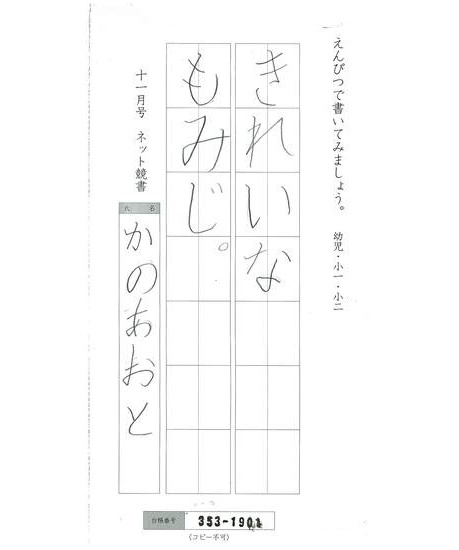 えんぴつで書いてみましょう。 幼児・小一・小二
きれいな
もみじ。
十一月号 ネット競書
氏名
かのあおと
台帳番号 353-1901
(コピー不可)